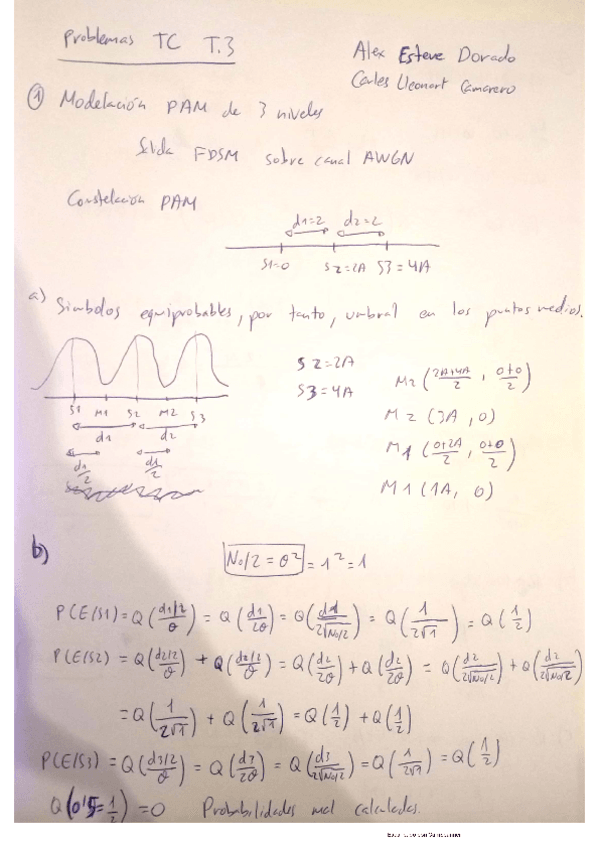 Problemas TC T.3
Alex Esteve Dorado
Carles Lleonart Camarero
① Modelación PAM de 3 niveles
FDSM sobre canal AWGN
Constelación PAM
d1=2 d2=2
S1=0 S2=2A S3=4A
a) Simbolos equiprobables, por tanto, umbral en los puntos medios.
S1 M1 S2 M2 S3
d1 d2
d1/2 d1/2
S2=2A
S3=4A
M2 (2A+4A/2, 0+0/2)
M2 (3A, 0)
M1 (0+2A/2, 0+0/2)
M1 (1A, 0)
b) No/2 = σ² = 1² = 1
P(E/S1) = Q(d1/2/σ) = Q(d1/2σ) = Q(d1/2√No/2) = Q(1/2√1) = Q(1/2)
P(E/S2) = Q(d2/2/σ) + Q(d2/2/σ) = Q(d2/2σ) + Q(d2/2σ) = Q(d2/2√No/2) + Q(d2/2√No/2)
= Q(1/2√1) + Q(1/2√1) = Q(1/2) + Q(1/2)
P(E/S3) = Q(d3/2/σ) = Q(d3/2σ) = Q(d3/2√No/2) = Q(1/2√1) = Q(1/2)
Q(0'5=1/2) = 0 Probabilidades mal calculadas.